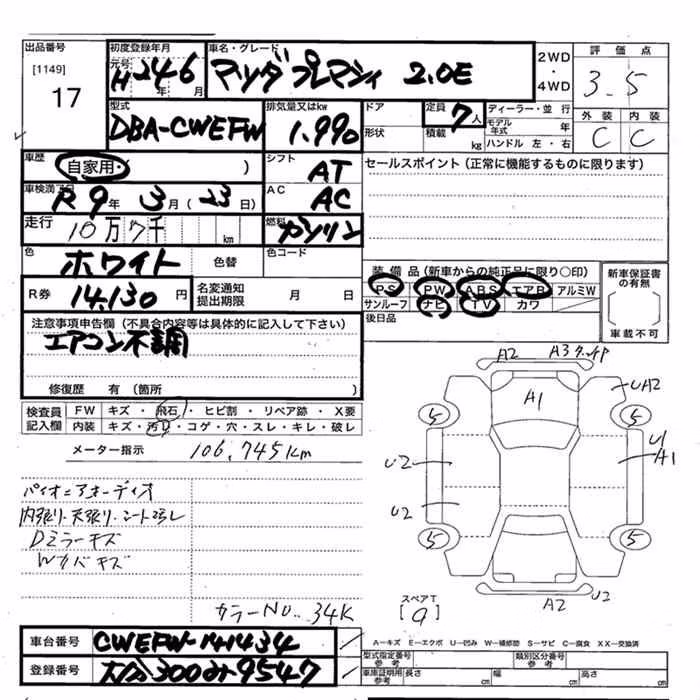 出品番号
[1149]
17
初度登録年月
元号 H 24 年 6 月
車名・グレード
マツダ プレマシィ 2.0E
2WD
・
4WD
評価点
3.5
外装 内装
C C
型式
DBA-CWEFW
排気量又はkw
1.990
ドア
形状
定員
7人
積載 kg
ディーラー・並行
モデル年式 年
ハンドル 左・右
車歴
自家用・( )
シフト
AT
セールスポイント(正常に機能するものに限ります)
車検満了日
R 9年 3月(23日)
AC
AC
走行
10万7千 km
燃料
ガソリン
色
ホワイト
色替
色コード
装備品(新車からの純正品に限り○印)
PS PW ABS エアB アルミW
サンルーフ ナビ TV カワ
後日品
新車保証書の有無
車載不可
R券
14,130円
名変通知
提出期限
月 日
注意事項申告欄(不具合内容等は具体的に記入して下さい)
エアコン不調
修復歴 有(箇所 )
検査員記入欄
FW キズ・飛石・ヒビ割・リペア跡・X要
内装 キズ・汚レ・コゲ・穴・スレ・キレ・破レ
メーター指示 106,745km
パイオニアオーディオ
内張り・天張り・シート汚レ
Dミラーキズ
Wカバキズ
カラーNo. 34K
A2 A3
A1
UA2
5 5
U2
U1
A1
U2
5 5
A2 U2
スペアT
[9]
車台番号
CWEFW-141434
登録番号
大分300み9547
A-キズ E-エクボ U-凹み W-補修跡 S-サビ C-腐食 XX-交換済
型式指定番号
参考
類別区分番号
参考
車庫証明用
参考
長さ cm 幅 cm 高さ cm